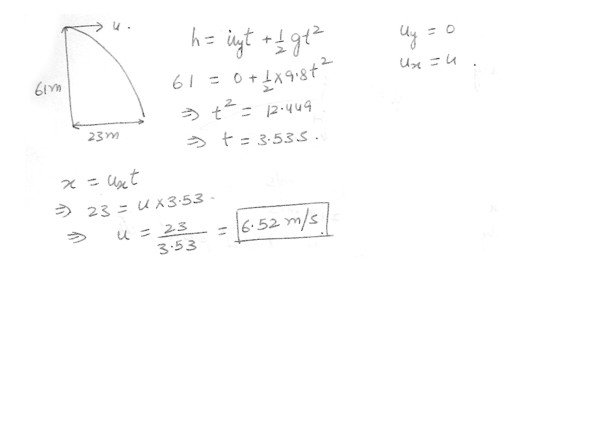 u.
61m
23m
h = uyt + 1/2 gt²
61 = 0 + 1/2 × 9.8t²
⇒ t² = 12.449
⇒ t = 3.53s.
uy = 0
ux = u .
x = uxt
⇒ 23 = u × 3.53.
⇒ u = 23/3.53 = 6.52 m/s.